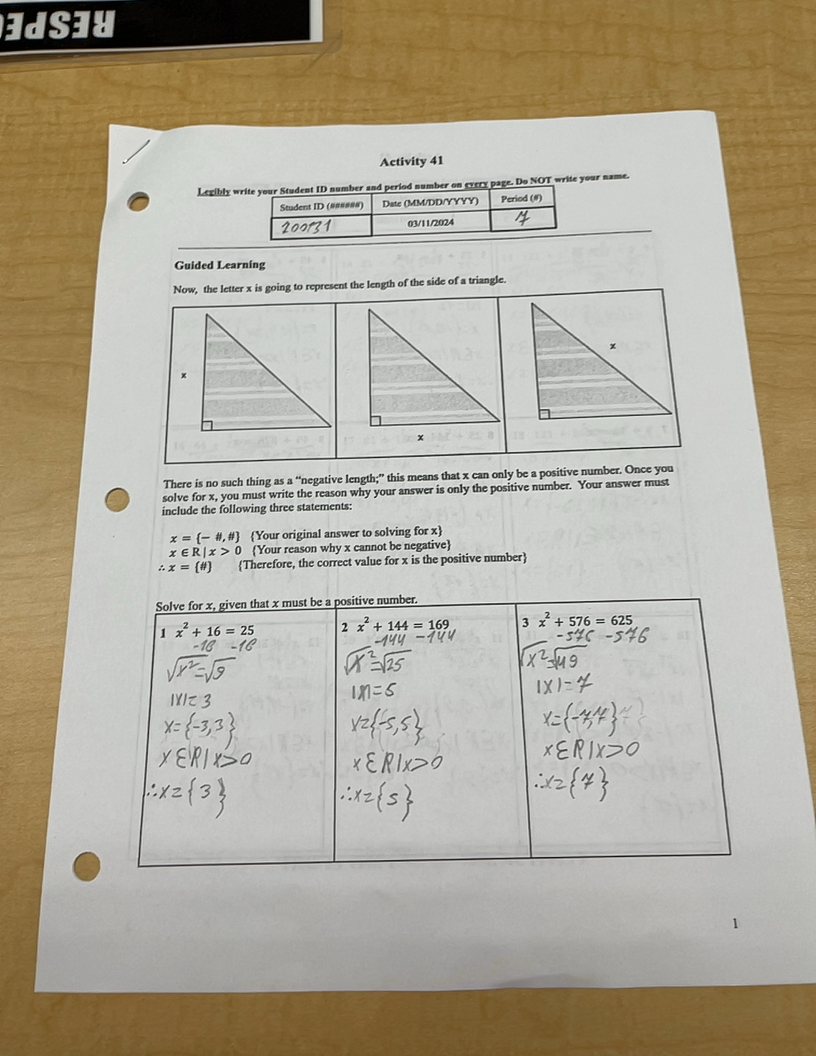 RESPE
Activity 41
Legibly write your Student ID number and period number on every page. Do NOT write your name.
Student ID (######) Date (MM/DD/YYYY) Period (#)
03/11/2024 7
Guided Learning
Now, the letter x is going to represent the length of the side of a triangle.
x
x
x
There is no such thing as a “negative length;” this means that x can only be a positive number. Once you
solve for x, you must write the reason why your answer is only the positive number. Your answer must
include the following three statements:
x = {− #, #} {Your original answer to solving for x}
x ∈ R | x > 0 {Your reason why x cannot be negative}
∴ x = {#} {Therefore, the correct value for x is the positive number}
Solve for x, given that x must be a positive number.
1 x² + 16 = 25
-16 -16
√x² = √9
|x| = 3
x = {-3,3}
x ∈ R | x > 0
∴ x = {3}
2 x² + 144 = 169
-144 -144
√x² = √25
|x| = 5
x = {-5,5}
x ∈ R | x > 0
∴ x = {5}
3 x² + 576 = 625
-576 -576
√x² = √49
|x| = 7
x = {-7,7}
x ∈ R | x > 0
∴ x = {7}
1